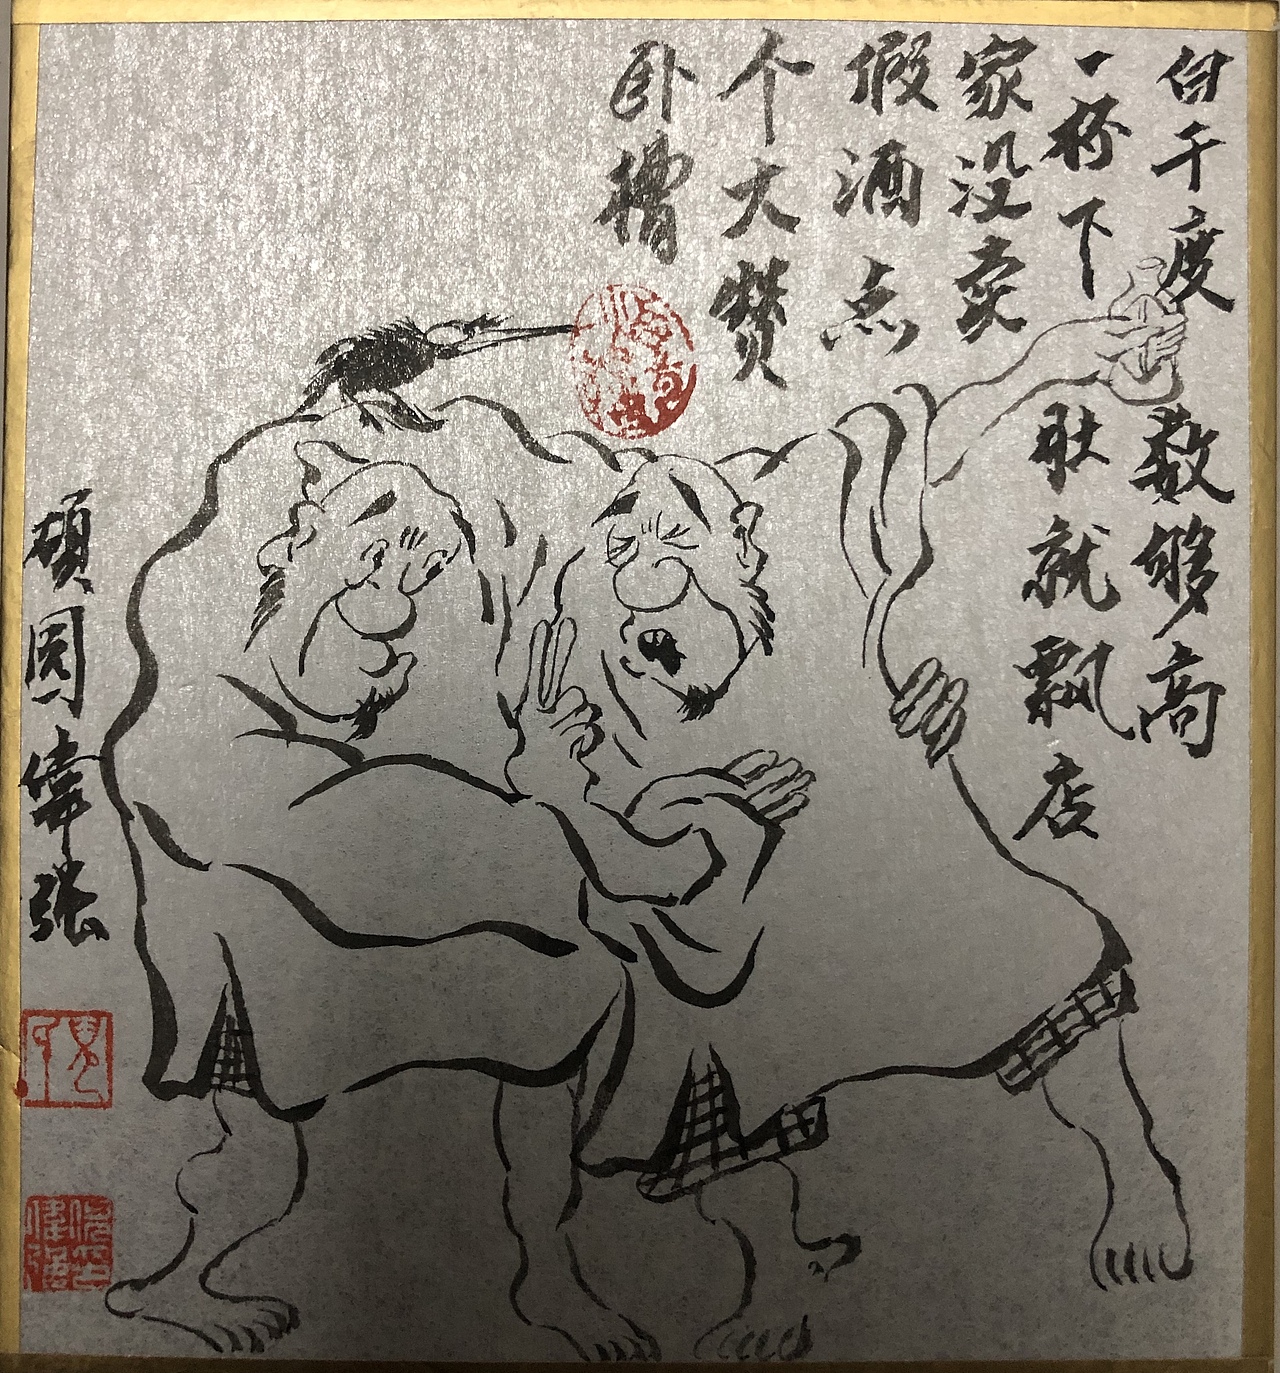 白干度数够高
一杯下肚就飘店
家没卖
假酒点
个大赞
卧槽